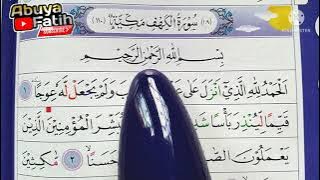 Abuya
Fatih
SUBSCRIBE
(١٨) سُورَةُ الْكَهْفِ مَكِّيَّة (١١٠)
بِسْمِ اللهِ الرَّحْمٰنِ الرَّحِيْمِ
اَلْحَمْدُ لِلّٰهِ الَّذِيْٓ اَنْزَلَ عَلٰى عَبْدِهِ وَلَمْ يَجْعَلْ لَّهٗ عِوَجًا ١
قَيِّمًا لِّيُنْذِرَ بَأْسًا شَدِ بَشِّرَ الْمُؤْمِنِيْنَ الَّذِيْنَ
يَعْمَلُوْنَ الصّٰ حَسَنًا ٢ مّٰكِثِيْنَ